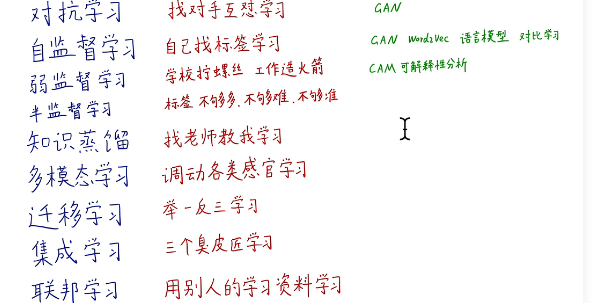 对抗学习 找对手互怼学习 GAN
自监督学习 自己找标签学习 GAN Word2Vec 语言模型 对比学习
弱监督学习 学校拧螺丝 工作造火箭 CAM 可解释性分析
半监督学习 标签 不够多.不够难.不够准
知识蒸馏 找老师教我学习
多模态学习 调动各类感官学习
迁移学习 举一反三学习
集成学习 三个臭皮匠学习
联邦学习 用别人的学习资料学习